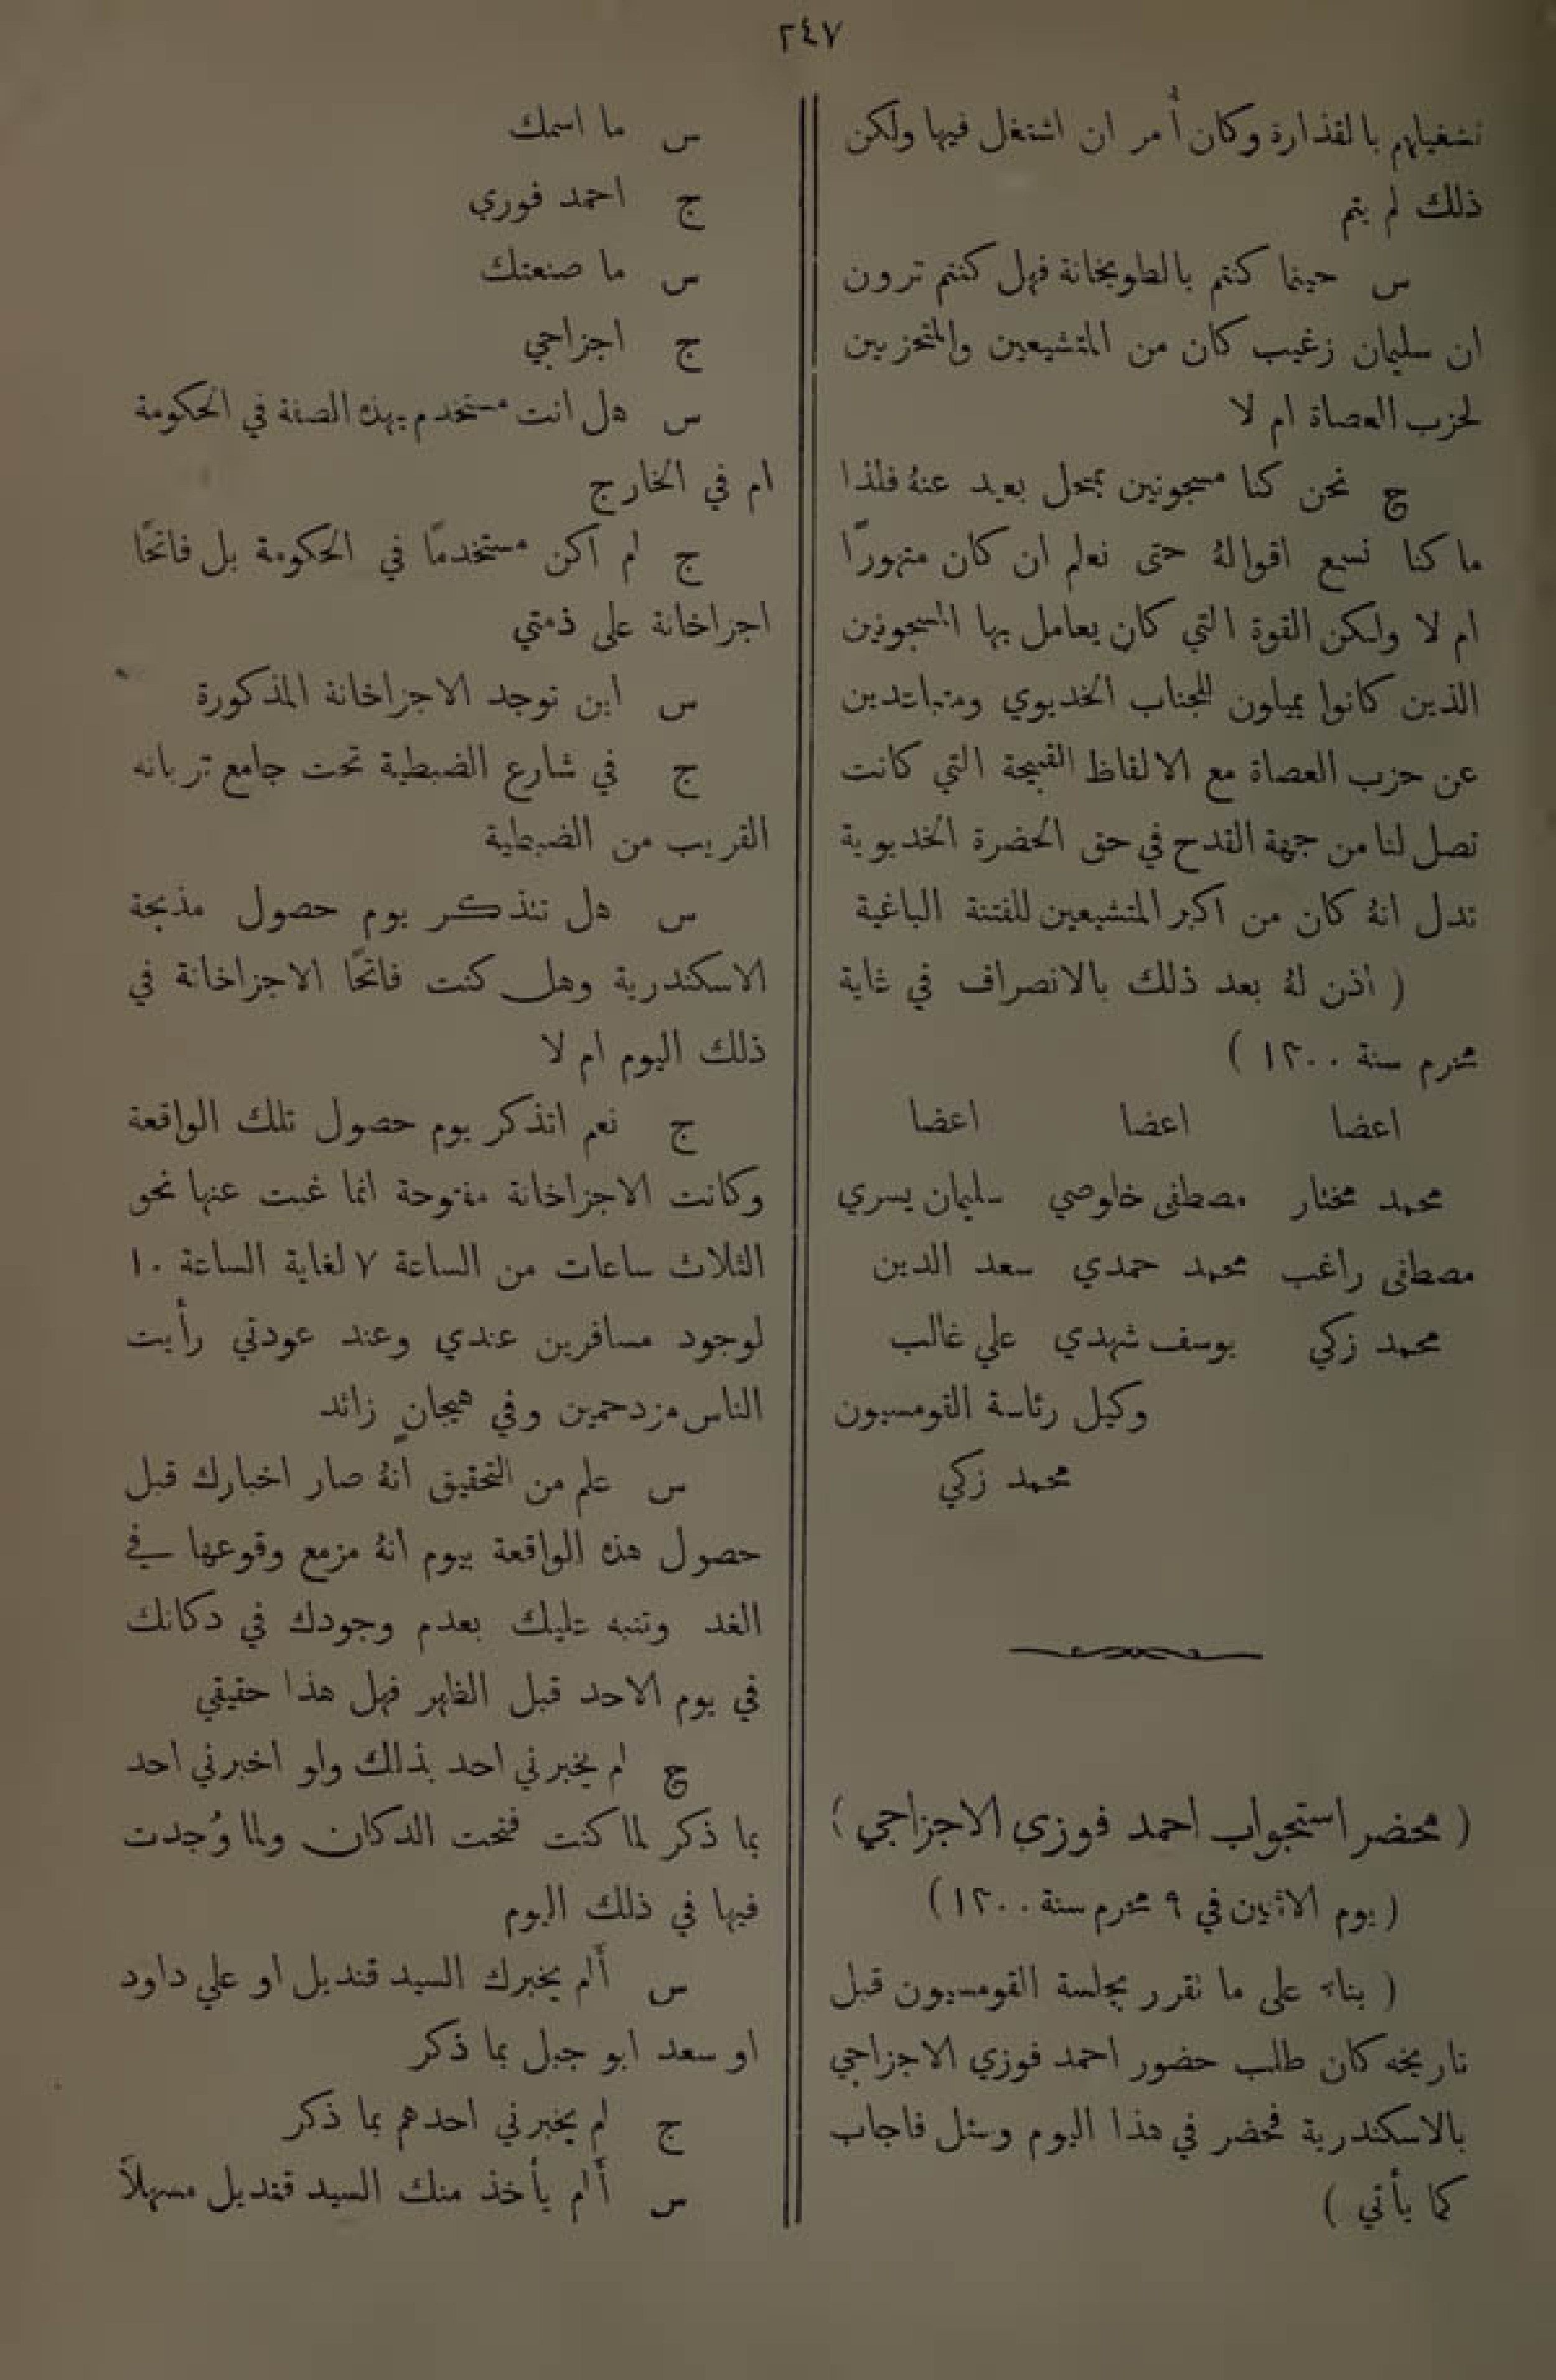 ٢٤٧
تشغيلهم بالقذارة وكان أُمر ان اشتغل فيها ولكن
ذلك لم يتم
س حينما كنتم بالطوبخانة فهل كنتم ترون
ان سليمان زغيب كان من المتشيعين والمتحزبين
لحزب العصاة ام لا
ج نحن كنا مسجونين بمحل بعيد عنهُ فلذا
ما كنا نسمع اقوالهُ حتى نعلم ان كان متهورًا
ام لا ولكن القوة التي كان يعامل بها المسجونين
الذين كانوا يميلون للجناب الخديوي ومتباعدين
عن حزب العصاة مع الالفاظ القبيحة التي كانت
تصل لنا من جهة القدح في حق الحضرة الخديوية
تدل انهُ كان من اكبر المتشيعين للفتنة الباغية
( أذن لهُ بعد ذلك بالانصراف في غاية
محرم سنة ١٣٠٠ )
اعضا اعضا اعضا
محمد مختار مصطفى خلوصي سليمان يسري
مصطفى راغب محمد حمدي سعد الدين
محمد زكي يوسف شهدي علي غالب
وكيل رئاسة القومسيون
محمد زكي
( محضر استجواب احمد فوزي الاجزاجي )
( يوم الاثنين في ٩ محرم سنة ١٣٠٠ )
( بناء على ما تقرر بجلسة القومسيون قبل
تاريخه كان طلب حضور احمد فوزي الاجزاجي
بالاسكندرية فحضر في هذا اليوم وسئل فاجاب
كما يأتي )
س ما اسمك
ج احمد فوزي
س ما صنعتك
ج اجزاجي
س هل انت مستخدم بهذه الصفة في الحكومة
ام في الخارج
ج لم اكن مستخدمًا في الحكومة بل فاتحًا
اجزاخانة على ذمتي
س اين توجد الاجزاخانة المذكورة
ج في شارع الضبطية تحت جامع تربانه
القريب من الضبطية
س هل تتذكر يوم حصول مذبحة
الاسكندرية وهل كنت فاتحًا الاجزاخانة في
ذلك اليوم ام لا
ج نعم اتذكر يوم حصول تلك الواقعة
وكانت الاجزاخانة مفتوحة انما غبت عنها نحو
الثلاث ساعات من الساعة ٧ لغاية الساعة ١٠
لوجود مسافرين عندي وعند عودتي رأيت
الناس مزدحمين وفي هيجانٍ زائد
س علم من التحقيق انهُ صار اخبارك قبل
حصول هذه الواقعة بيوم انهُ مزمع وقوعها في
الغد وتنبه عليك بعدم وجودك في دكانك
في يوم الاحد قبل الظهر فهل هذا حقيقي
ج لم يخبرني احد بذلك ولو اخبرني احد
بما ذكر لما كنت فتحت الدكان ولما وُجدت
فيها في ذلك اليوم
س أَلم يخبرك السيد قنديل او علي داود
او سعد ابو جبل بما ذكر
ج لم يخبرني احدهم بما ذكر
س أَلم يأخذ منك السيد قنديل مسهلاً